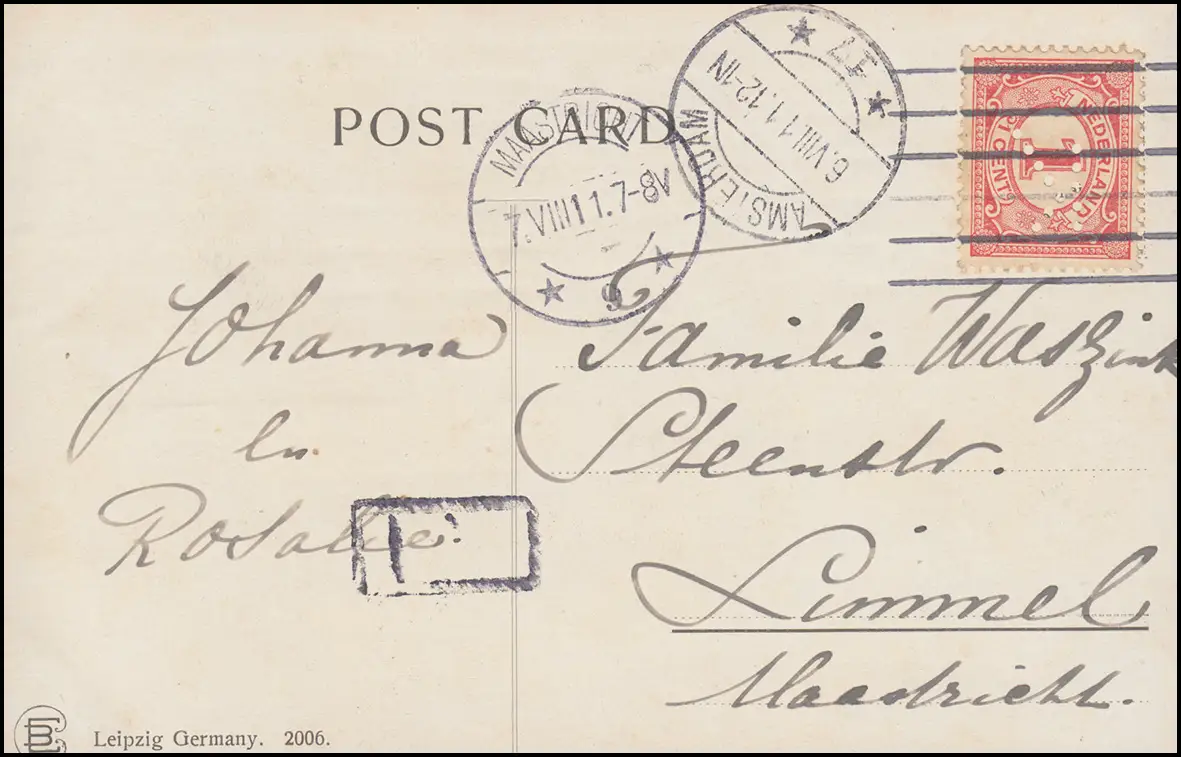 POST CARD
MAASTRICHT
7.VIII11.7-8V
9
AMSTERDAM
6.VIII.11.12-1N
NEDERLAND
1
1 CENT
Johanna
en
Rosalie.
Familie Waszink
Steenstr.
Limmel
Maastricht.
Leipzig Germany. 2006.